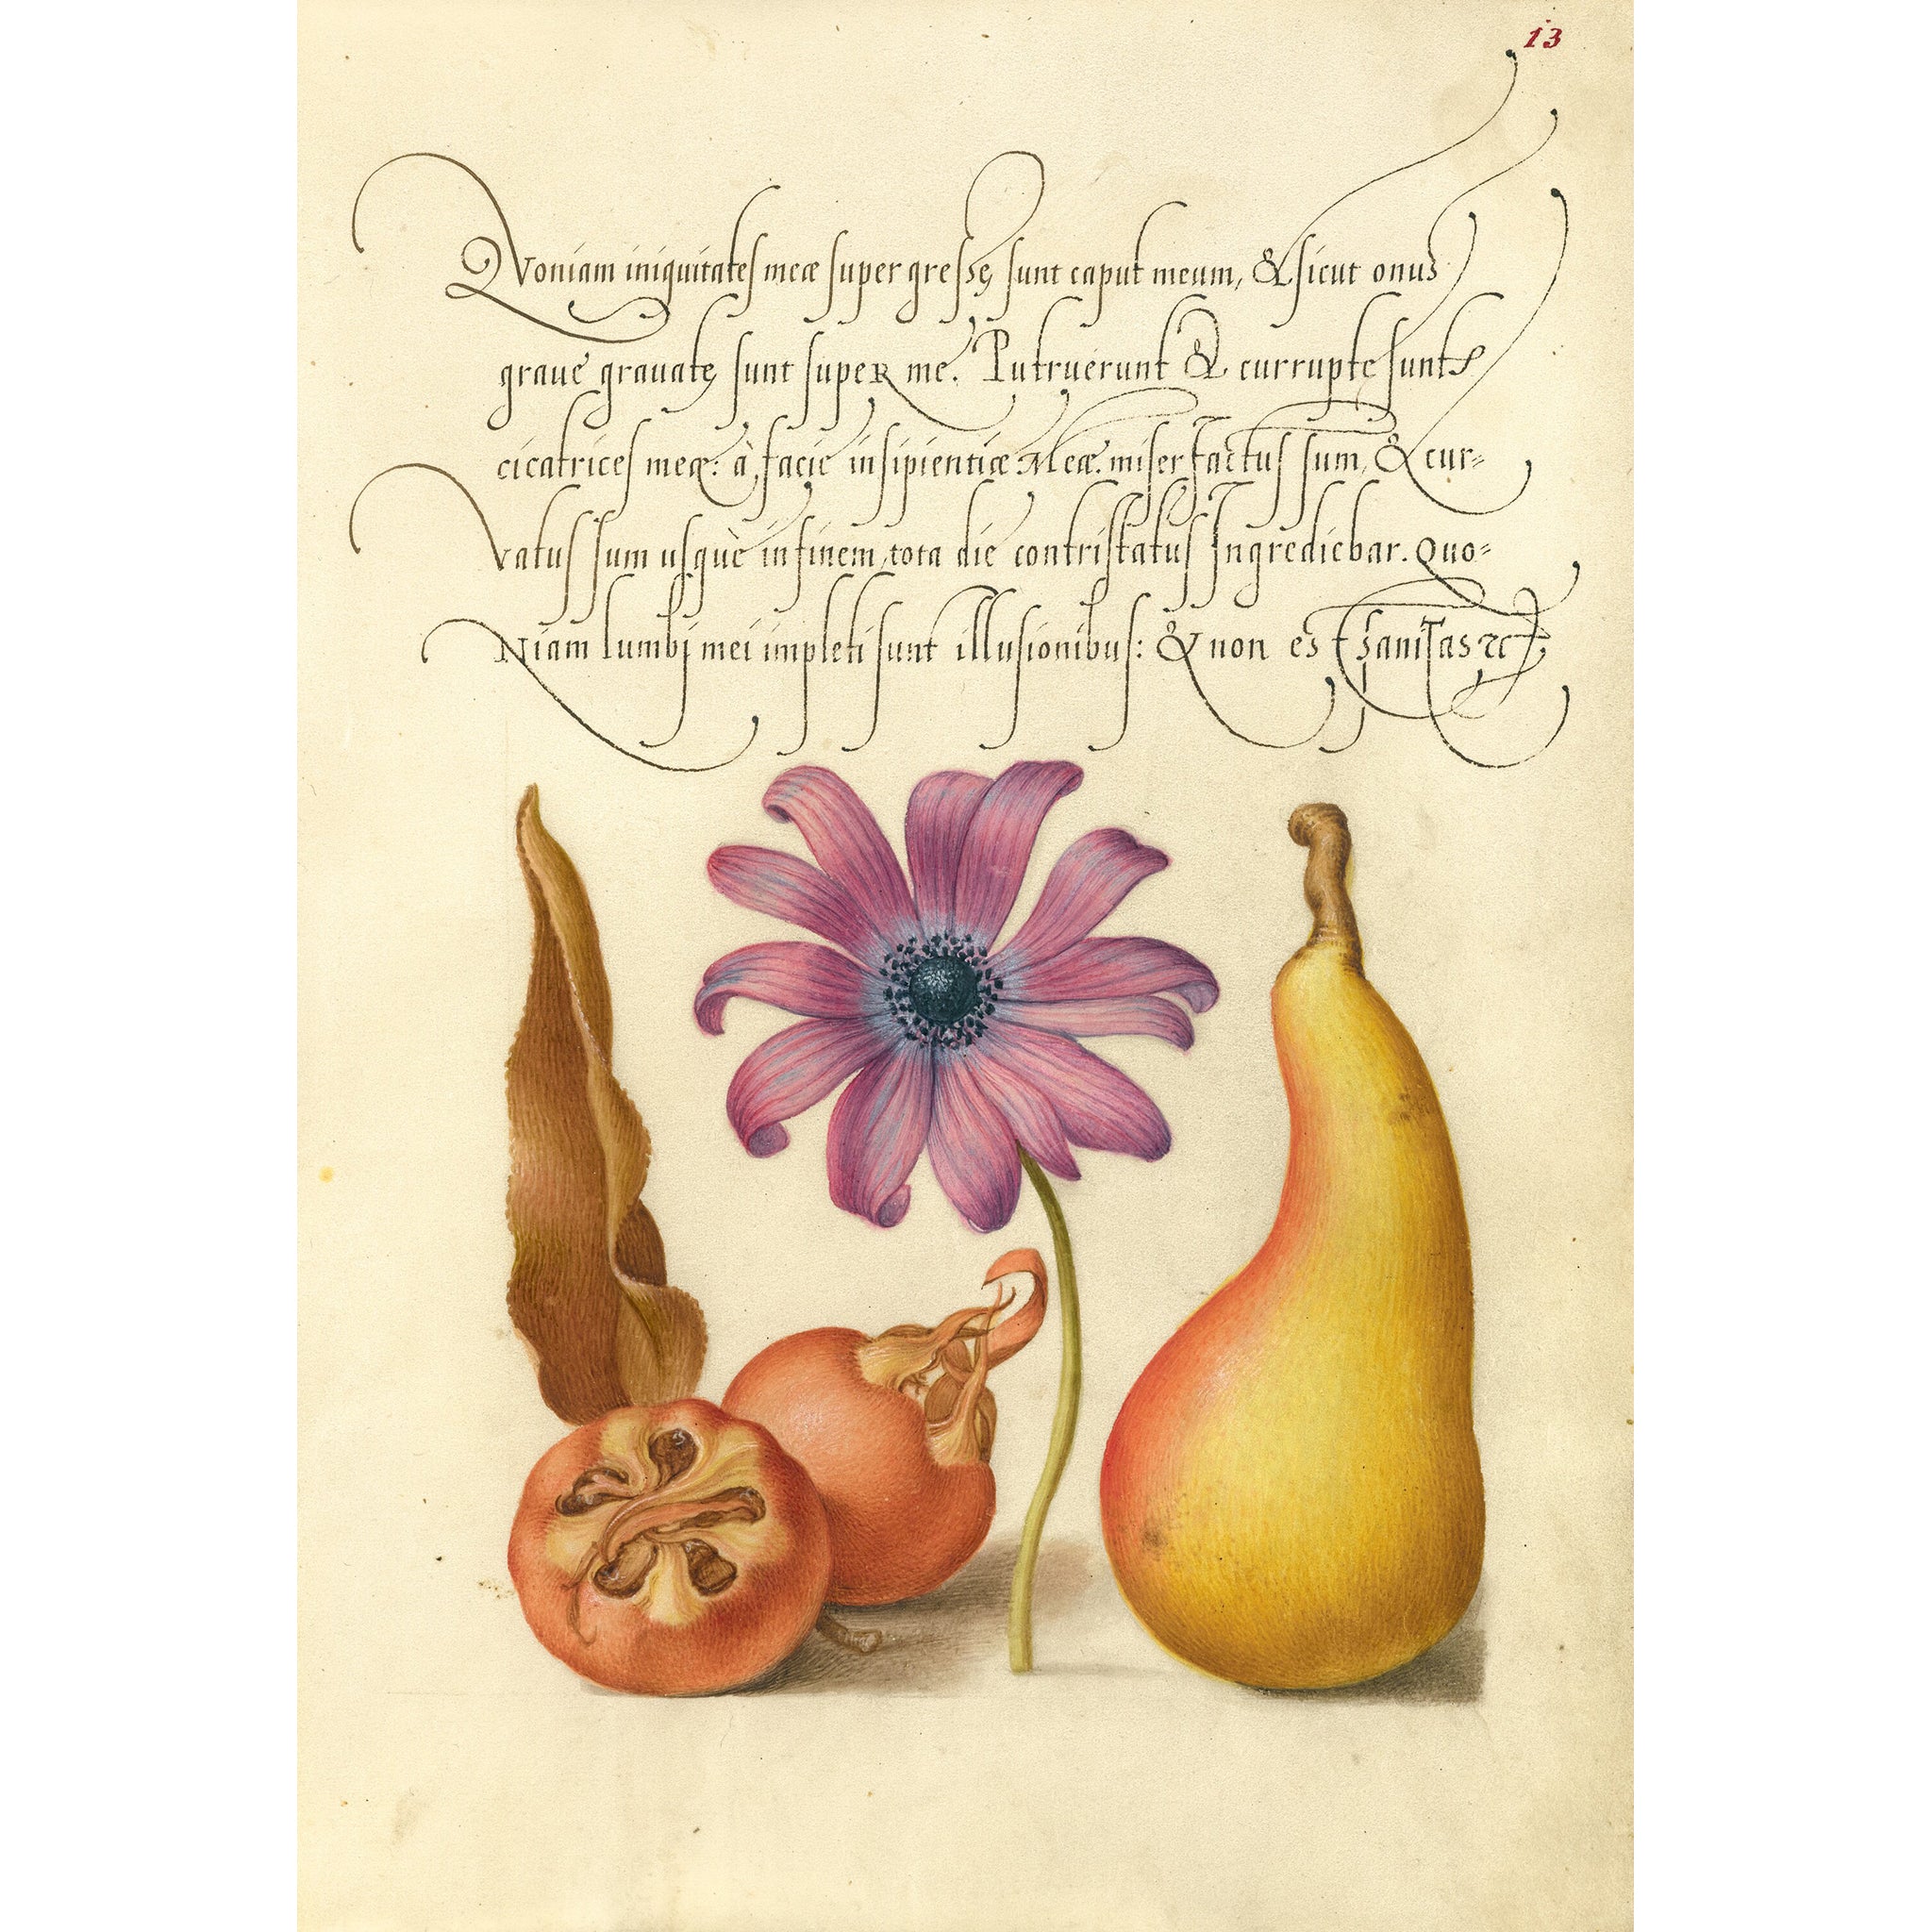 13
Qvoniam iniquitates meæ supergressę sunt caput meum, & sicut onus
graue grauatę sunt super me. Putruerunt & currupte sunt
cicatrices meæ: à facie insipientiæ Meæ. miser factus sum, & cur=
vatus sum usquè in finem, tota die contristatus Ingrediebar. Quo=
Niam lumbj mei impleti sunt illusionibus: & non est sanitas &c